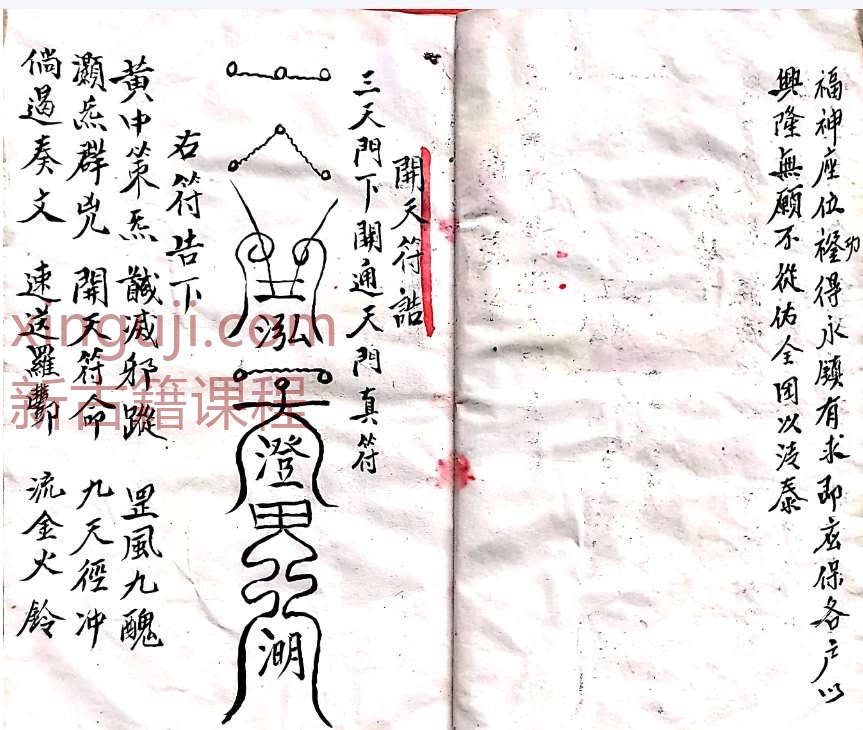 福神座位穏得永鎮有求即應保各户以
功
興隆無願不從佑全国以清泰
開天符誥
三天門下開通天門真符
泓
澄
湖
右符告下
黃中策炁 馘滅邪蹤 罡風九醜
灝炁群兇 開天符命 九天徑冲
倘遏奏文 速送羅酆 流金火鈴
xinguji.com
新古籍课程